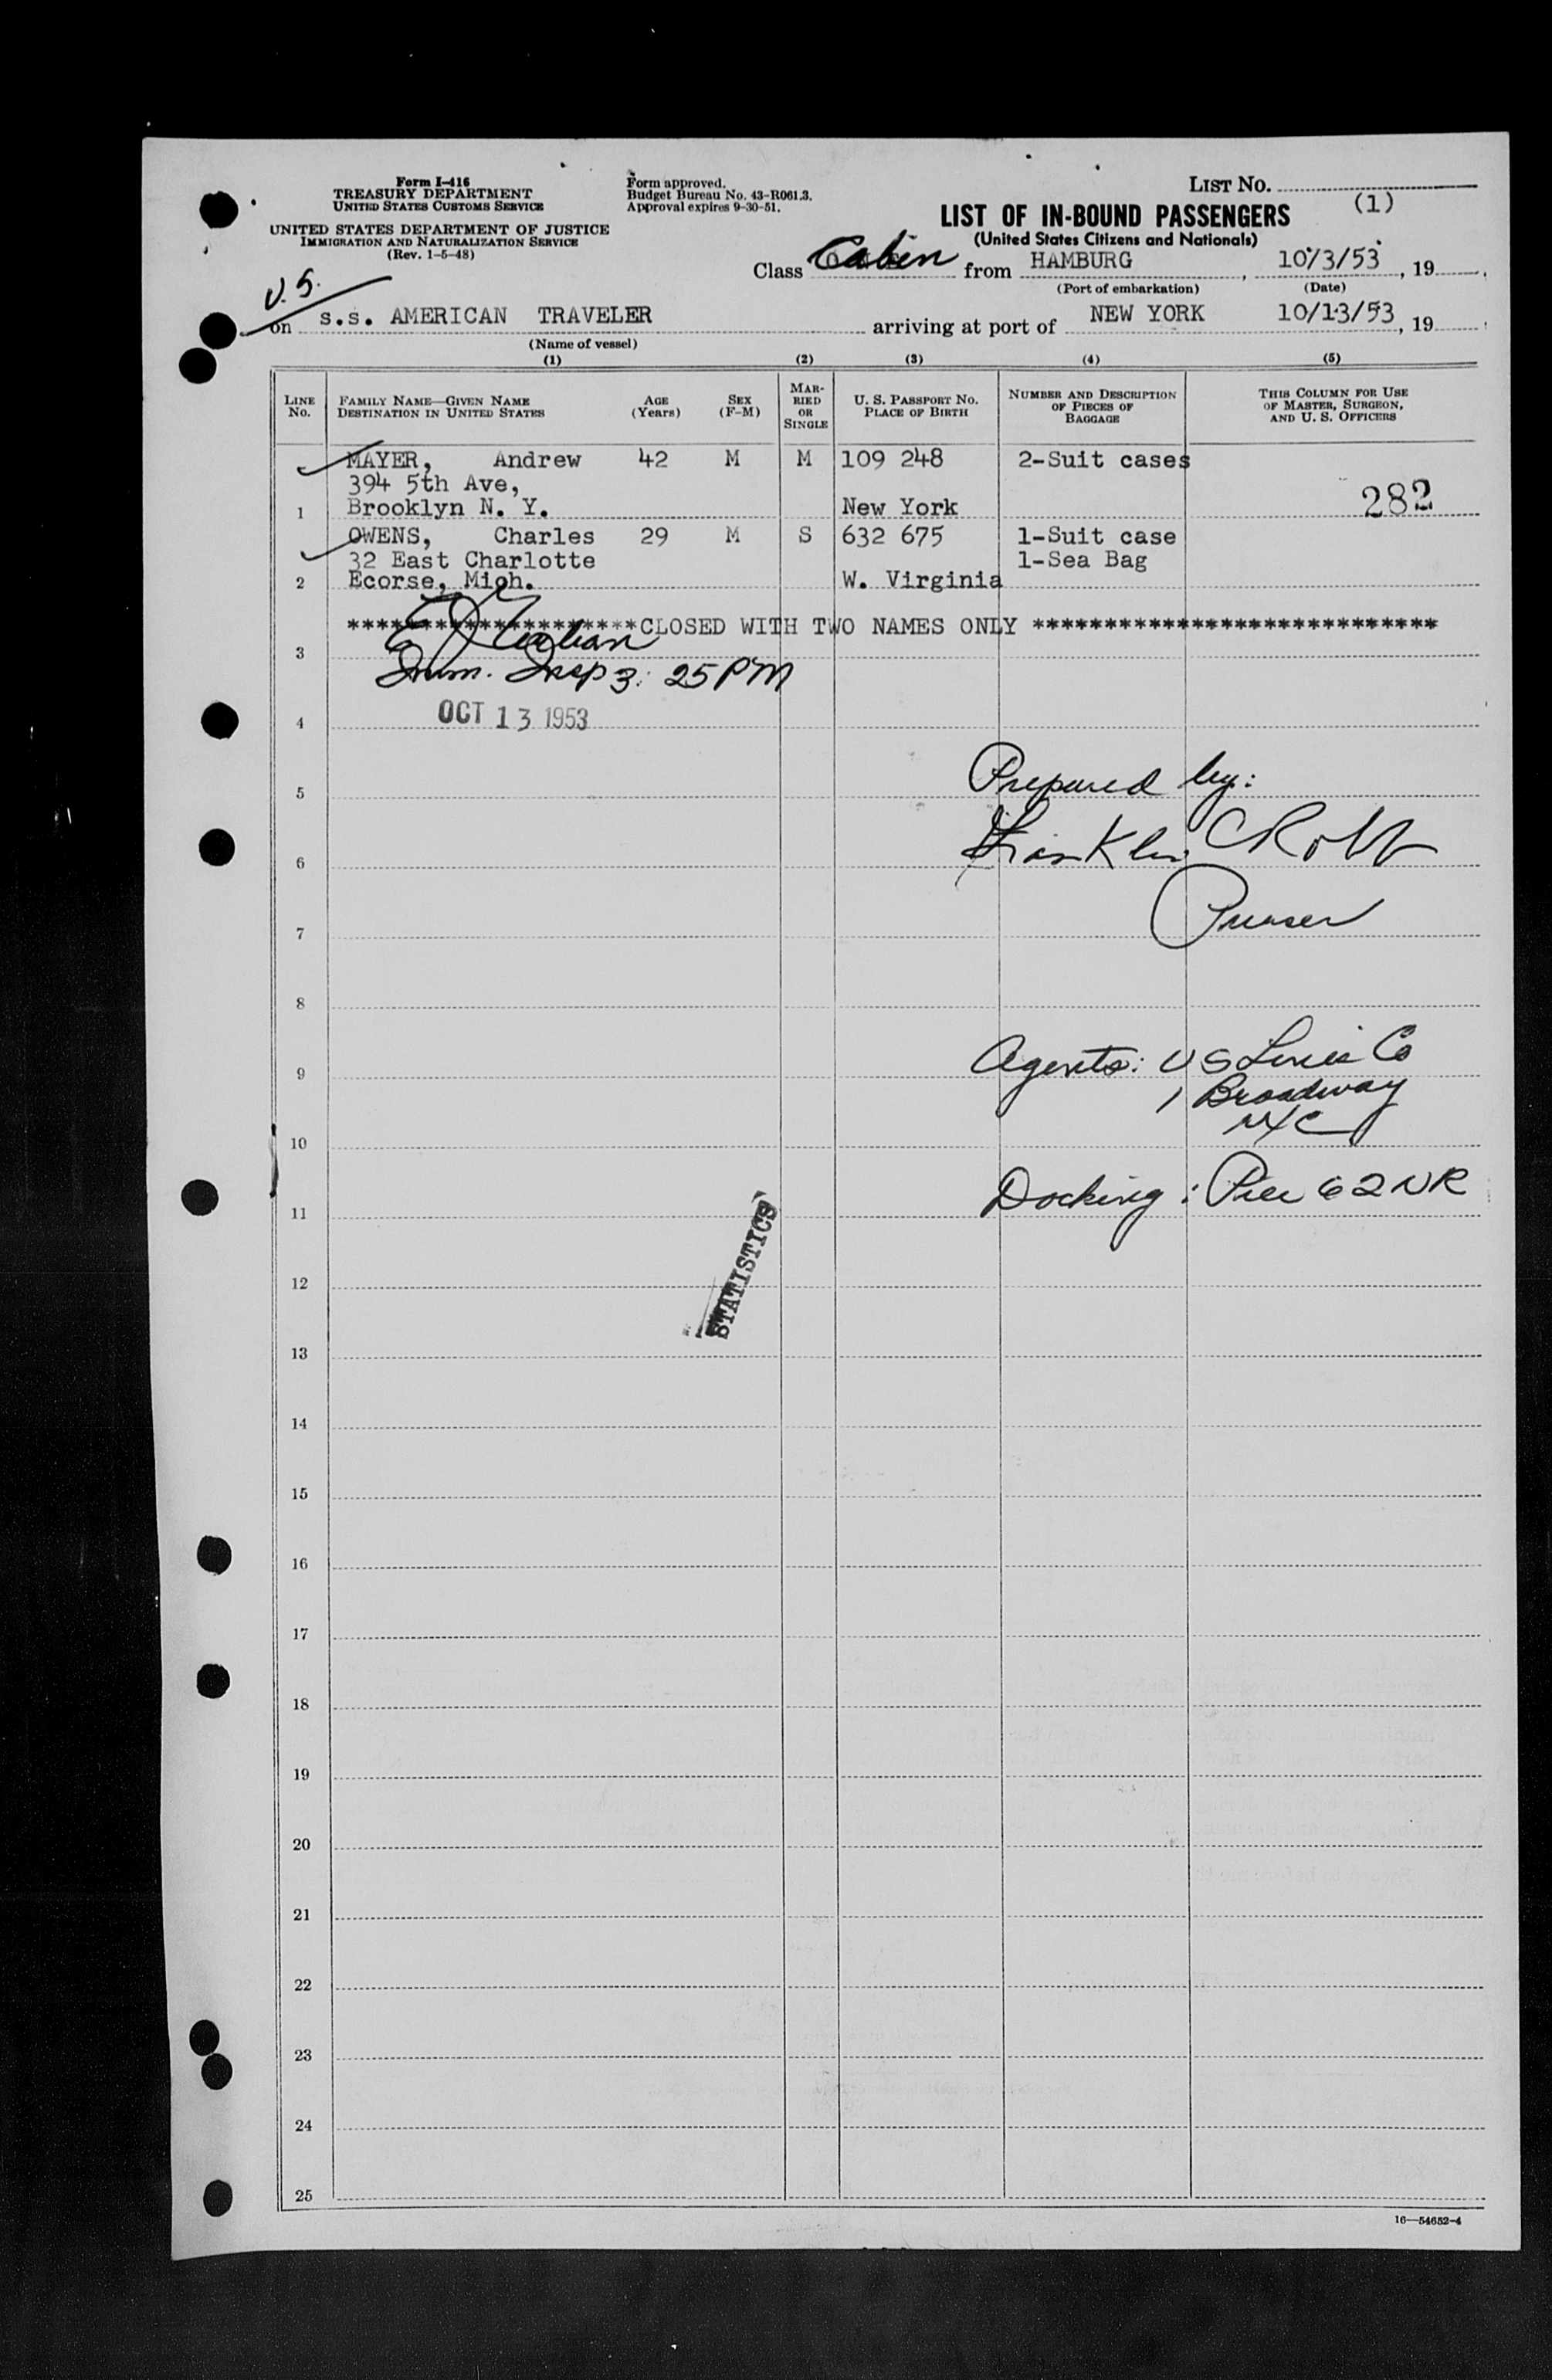 Form I-416
TREASURY DEPARTMENT
UNITED STATES CUSTOMS SERVICE
UNITED STATES DEPARTMENT OF JUSTICE
IMMIGRATION AND NATURALIZATION SERVICE
(Rev. 1-5-48)
Form approved.
Budget Bureau No. 43-R061.3.
Approval expires 9-30-51.
LIST No.
(1)
LIST OF IN-BOUND PASSENGERS
(United States Citizens and Nationals)
Class Cabin from HAMBURG, 10/3/53, 19
(Port of embarkation) (Date)
U.S.
on s.s. AMERICAN TRAVELER arriving at port of NEW YORK 10/13/53, 19
(Name of vessel)
(1) (2) (3) (4) (5)
LINE No. FAMILY NAME—GIVEN NAME DESTINATION IN UNITED STATES AGE (Years) SEX (F-M) MARRIED OR SINGLE U. S. PASSPORT No. PLACE OF BIRTH NUMBER AND DESCRIPTION OF PIECES OF BAGGAGE THIS COLUMN FOR USE OF MASTER, SURGEON, AND U. S. OFFICERS
MAYER, Andrew 42 M M 109 248 2-Suit cases
394 5th Ave,
1 Brooklyn N. Y. New York 282
OWENS, Charles 29 M S 632 675 1-Suit case
32 East Charlotte 1-Sea Bag
2 Ecorse, Mich. W. Virginia
********************CLOSED WITH TWO NAMES ONLY ****************************
3
Imm. Insp 3:25 PM
4 OCT 13 1953
Prepared by:
5
6 Franklin C
7 Purser
8
9 Agents: US Lines Co
1 Broadway
10 NYC
11 Docking: Pier 62 NR
STATISTICS
12
13
14
15
16
17
18
19
20
21
22
23
24
25
16—54652-4